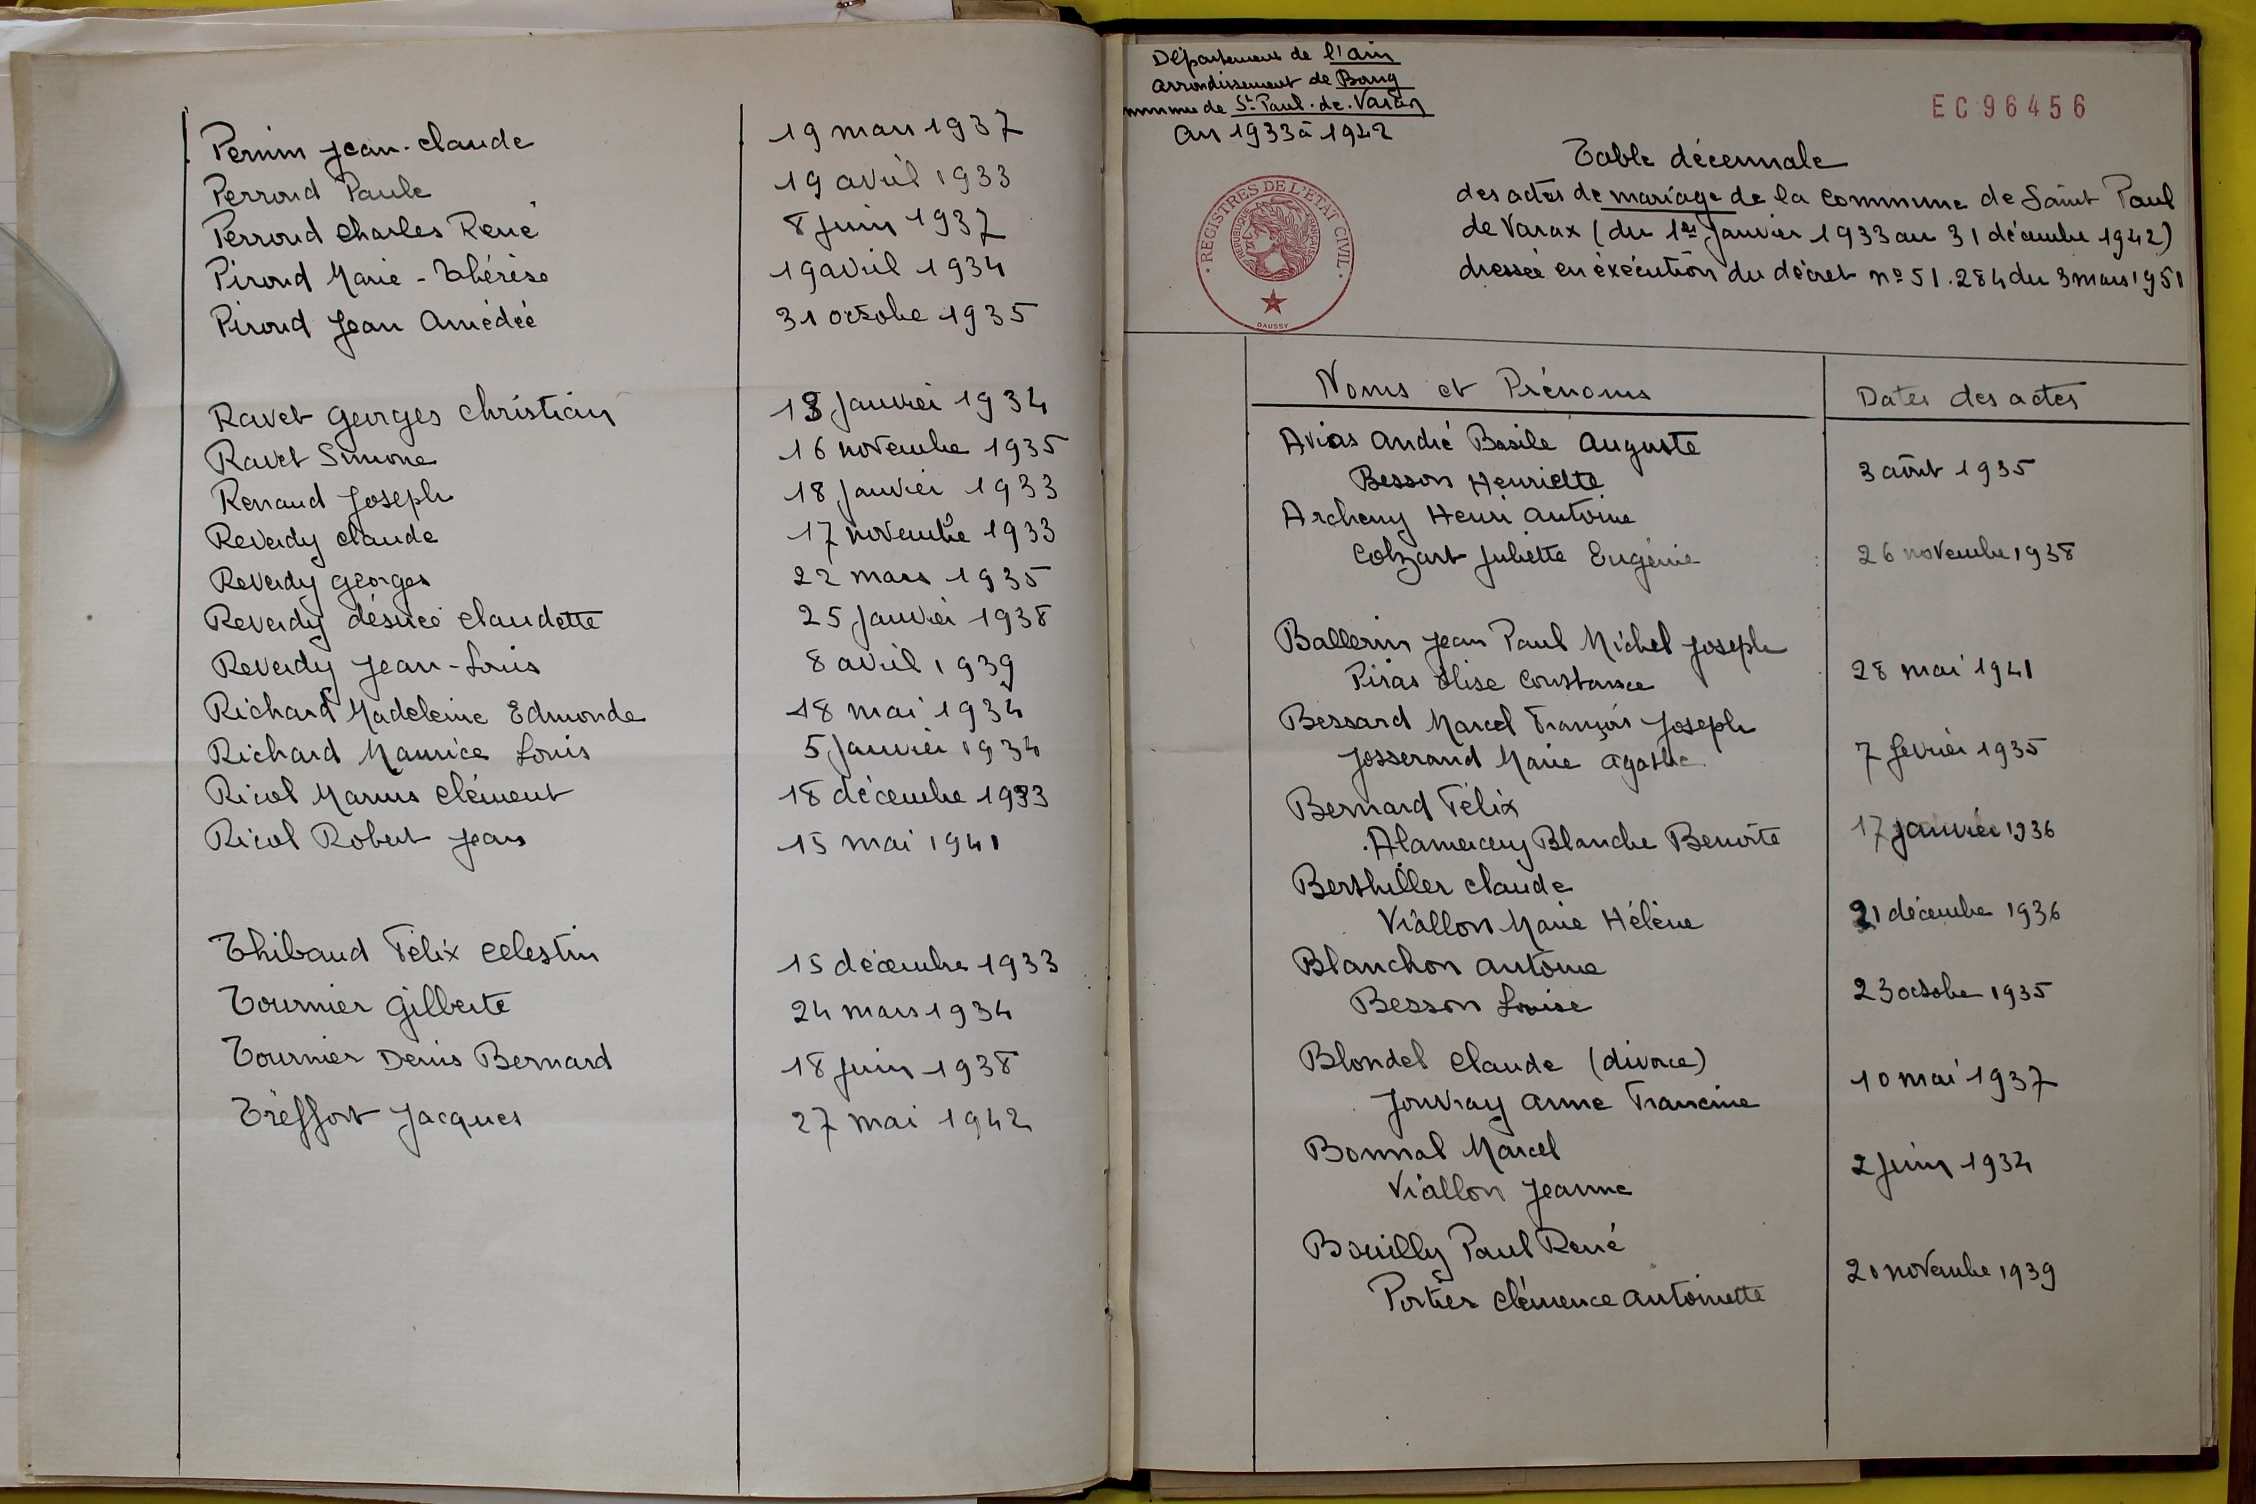 Perrin Jean-Claude 19 mars 1937
Perroud Paule 19 avril 1933
Perroud Charles René 8 juin 1937
Piroud Marie-Thérèse 19 avril 1934
Piroud Jean Amédée 31 octobre 1935
Ravet Georges Christian 13 janvier 1934
Ravet Simone 16 novembre 1935
Renaud Joseph 18 janvier 1933
Reverdy Claude 17 novembre 1933
Reverdy Georges 22 mars 1935
Reverdy désirée Claudette 25 janvier 1938
Reverdy Jean-Louis 8 avril 1939
Richard Madeleine Edmonde 18 mai 1934
Richard Maurice Louis 5 janvier 1934
Ricol Marius Clément 18 décembre 1933
Ricol Robert Jean 15 mai 1941
Thibaud Félix Celestin 15 décembre 1933
Tournier Gilberte 24 mars 1934
Tournier Denis Bernard 18 juin 1938
Tréffort Jacques 27 mai 1942
Département de l'Ain
Arrondissement de Bourg
mmune de St. Paul-de-Varax
An 1933 à 1942
EC96456
REGISTRES DE L'ÉTAT CIVIL
RÉPUBLIQUE FRANÇAISE
DAUSSY
Table décennale
des actes de mariage de la commune de Saint Paul
de Varax (du 1er Janvier 1933 au 31 décembre 1942)
dressée en éxécution du décret nº 51.284 du 3 mars 1951
Noms et Prénoms Dates des actes
Avias André Basile Auguste
Besson Henriette 3 août 1935
Archeny Henri Antoine
Juliette Eugénie 26 novembre 1938
Ballerin Jean Paul Michel Joseph
Piras Elise Constance 28 mai 1941
Bessard Marcel François Joseph
Josserand Marie Agathe 7 fevrier 1935
Bernard Félix
Alamercery Blanche Benoîte 17 janvier 1936
Berthiller Claude
Viallon Marie Hélène 21 décembre 1936
Blanchon Antoine
Besson Louise 23 octobre 1935
Blondel Claude (divorce)
Jouvray Anne Francine 10 mai 1937
Bonnal Marcel
Viallon Jeanne 2 juin 1934
Bouilly Paul René
Portier Clémence Antoinette 20 novembre 1939